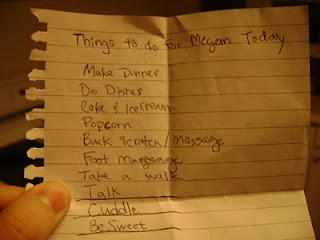 Things to do for Megan Today
Make Dinner
Do Dishes
Cake & Ice Cream
Popcorn
Back Scratch/Massage
Foot Massage
Take a walk
Talk
Cuddle
Be Sweet